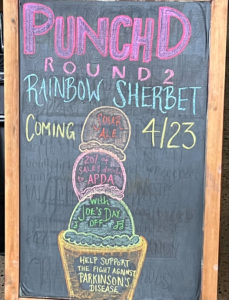 PUNCHD
ROUND 2
RAINBOW SHERBET
COMING 4/23
SALE
20% of
SALES
APDA
with
JOE'S DAY
OFF
HELP SUPPORT
THE FIGHT AGAINST
PARKINSON'S
DISEASE